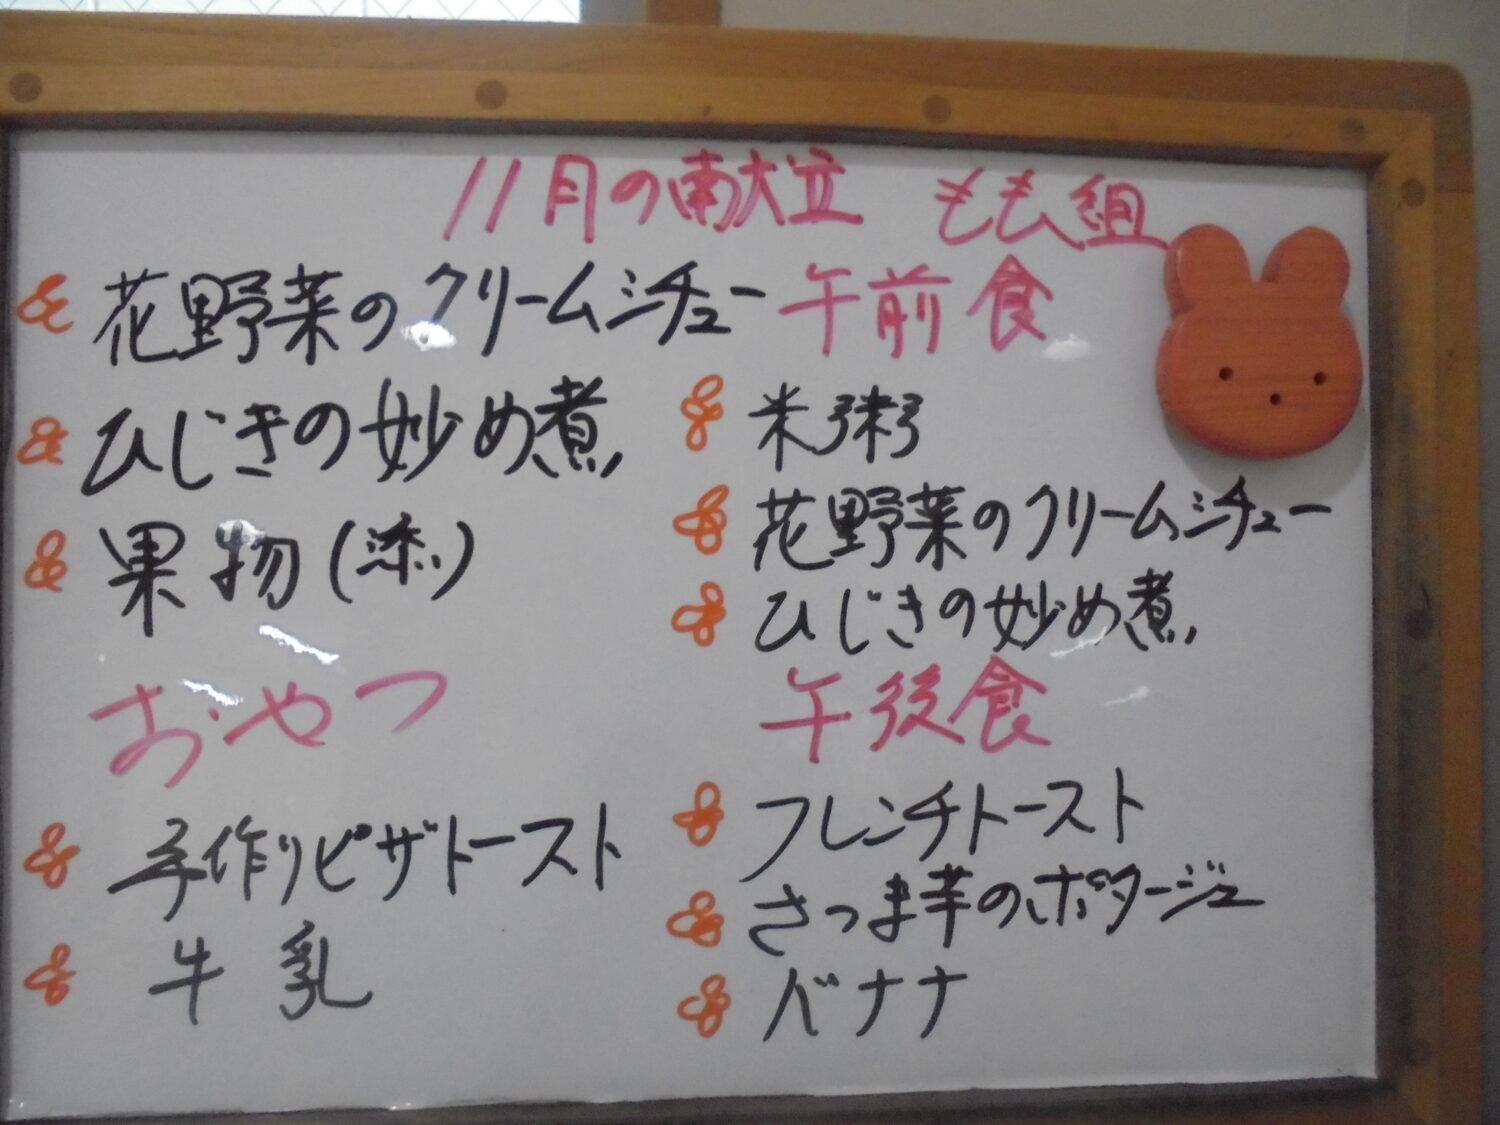 11月の献立 もも組
花野菜のクリームシチュー
ひじきの炒め煮
果物(添)
おやつ
手作りピザトースト
牛乳
午前食
米粥
花野菜のクリームシチュー
ひじきの炒め煮
午後食
フレンチトースト
さつま芋のポタージュ
バナナ